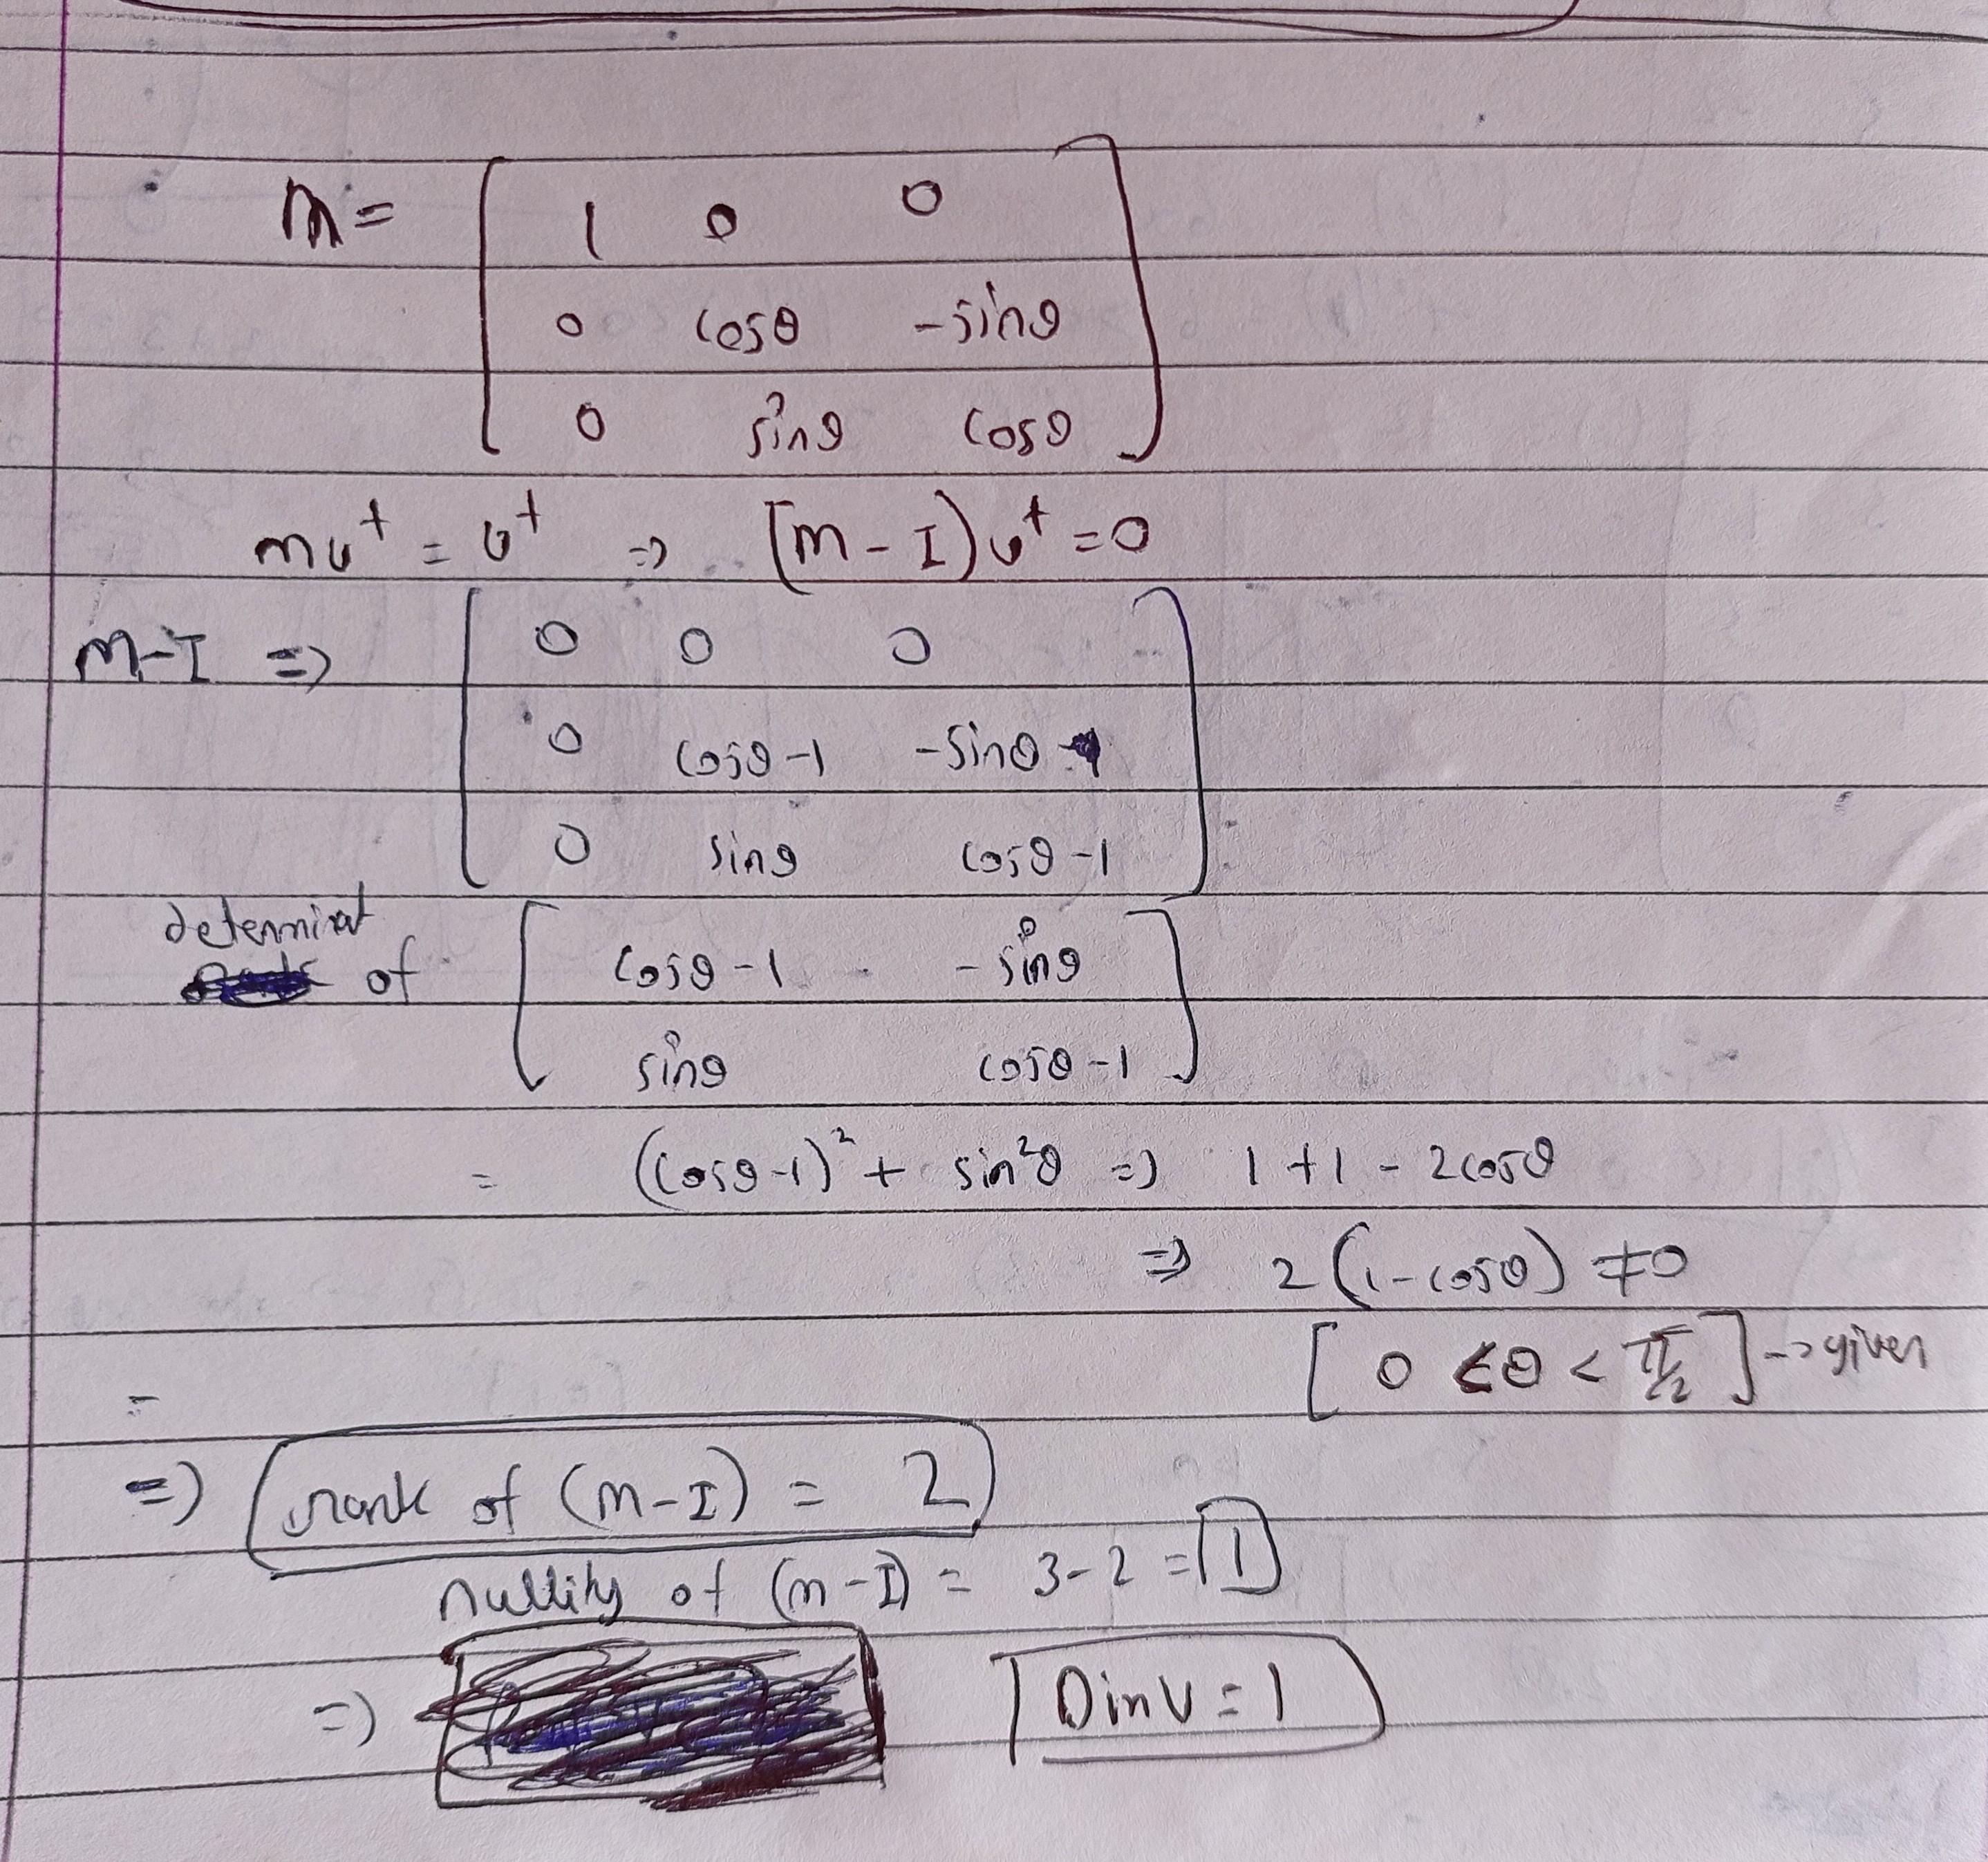 m = [ 1 0 0
0 cosθ -sinθ
0 sinθ cosθ ]
mv^t = v^t => [m - I)v^t = 0
m-I => [ 0 0 0
0 cosθ-1 -sinθ
0 sinθ cosθ-1 ]
determinat
of [ cosθ-1 -sinθ
sinθ cosθ-1 ]
= (cosθ-1)² + sin²θ => 1+1-2cosθ
=> 2(1-cosθ) ≠0
[ 0 < θ < π/2 ] -> given
=
=> rank of (m-I) = 2
nullity of (m-I) = 3-2 = 1
=> DimV = 1